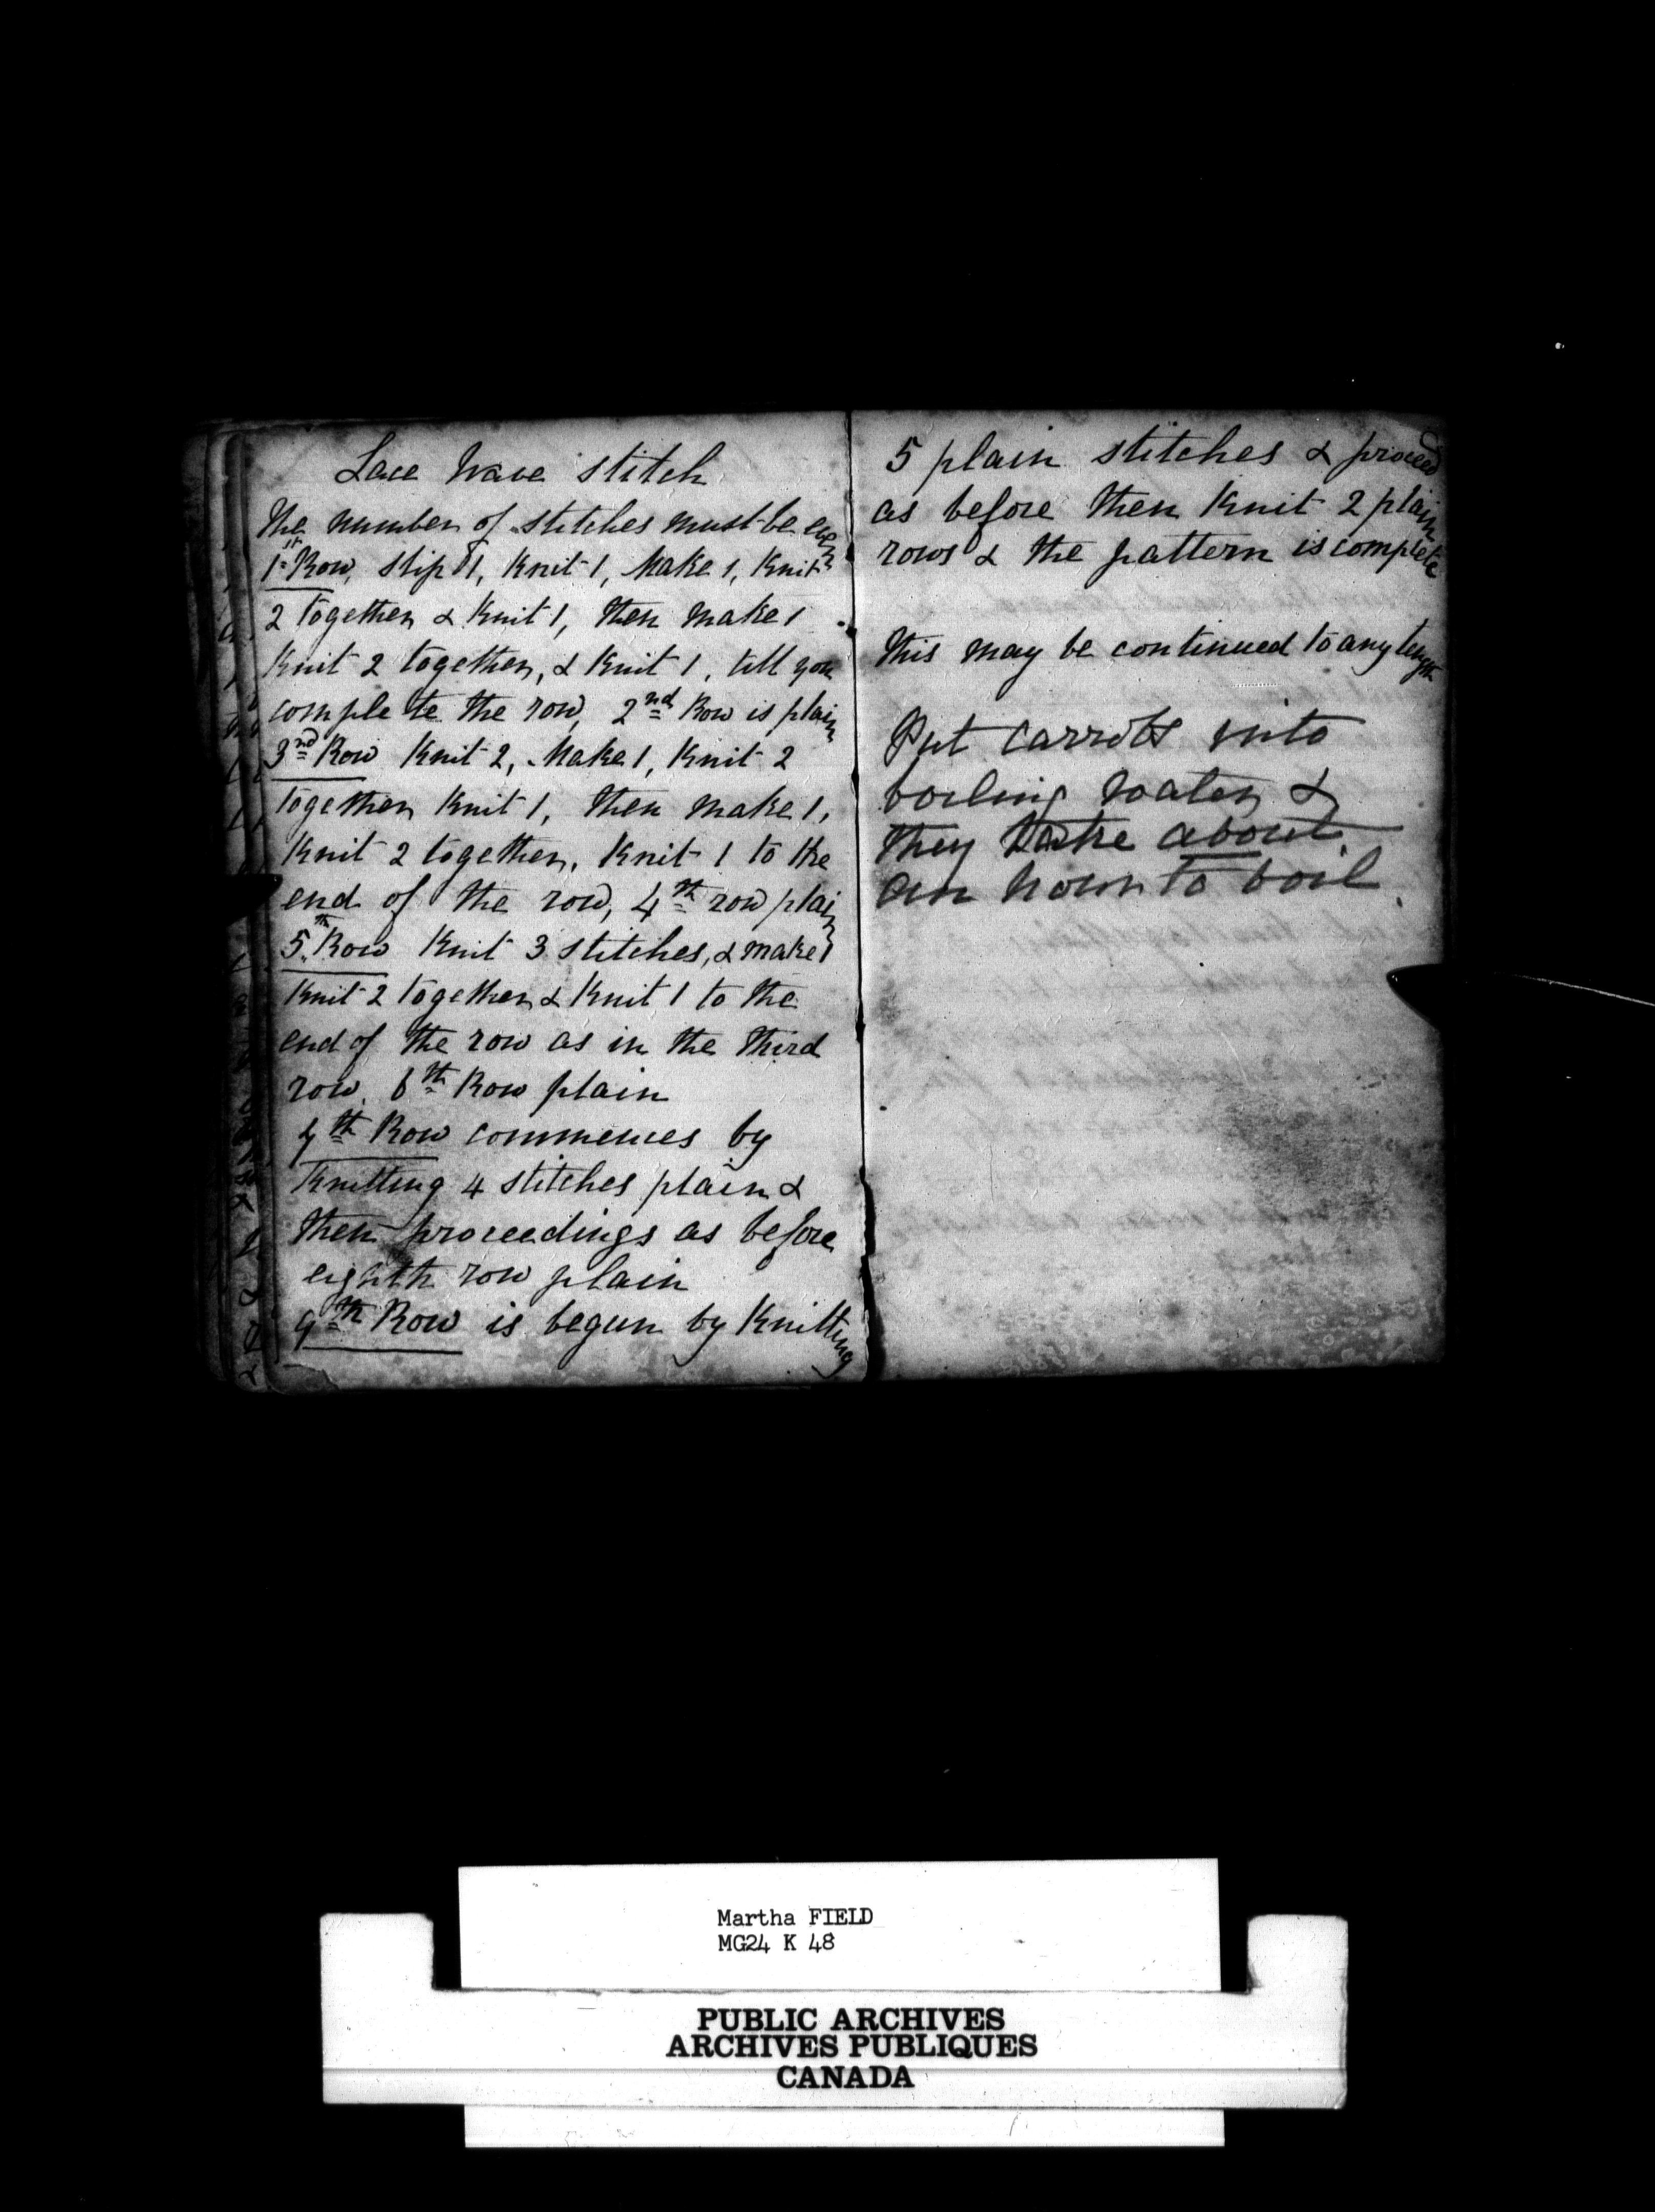 Lace Wave Stitch
The number of stitches must be even
1st Row, Slip 1, Knit 1, Make 1, Knit
2 together & Knit 1, then make 1
Knit 2 together, & Knit 1, till you
complete the row, 2nd Row is plain
3nd Row Knit 2, Make 1, Knit 2
together Knit 1, then make 1,
Knit 2 together, Knit 1 to the
end of the row, 4th row plain
5th Row Knit 3 stitches, & make 1
Knit 2 together & Knit 1 to the
end of the row as in the third
row. 6th Row plain
7th Row commences by
Knitting 4 stitches plain &
then proceedings as before
eighth row plain
9th Row is begun by Knitting
5 plain stitches & proceed
as before then Knit 2 plain
rows & the pattern is complete
This may be continued to any length
Put carrots into
boiling water &
they take about
an hour to boil
Martha FIELD
MG24 K 48
PUBLIC ARCHIVES
ARCHIVES PUBLIQUES
CANADA